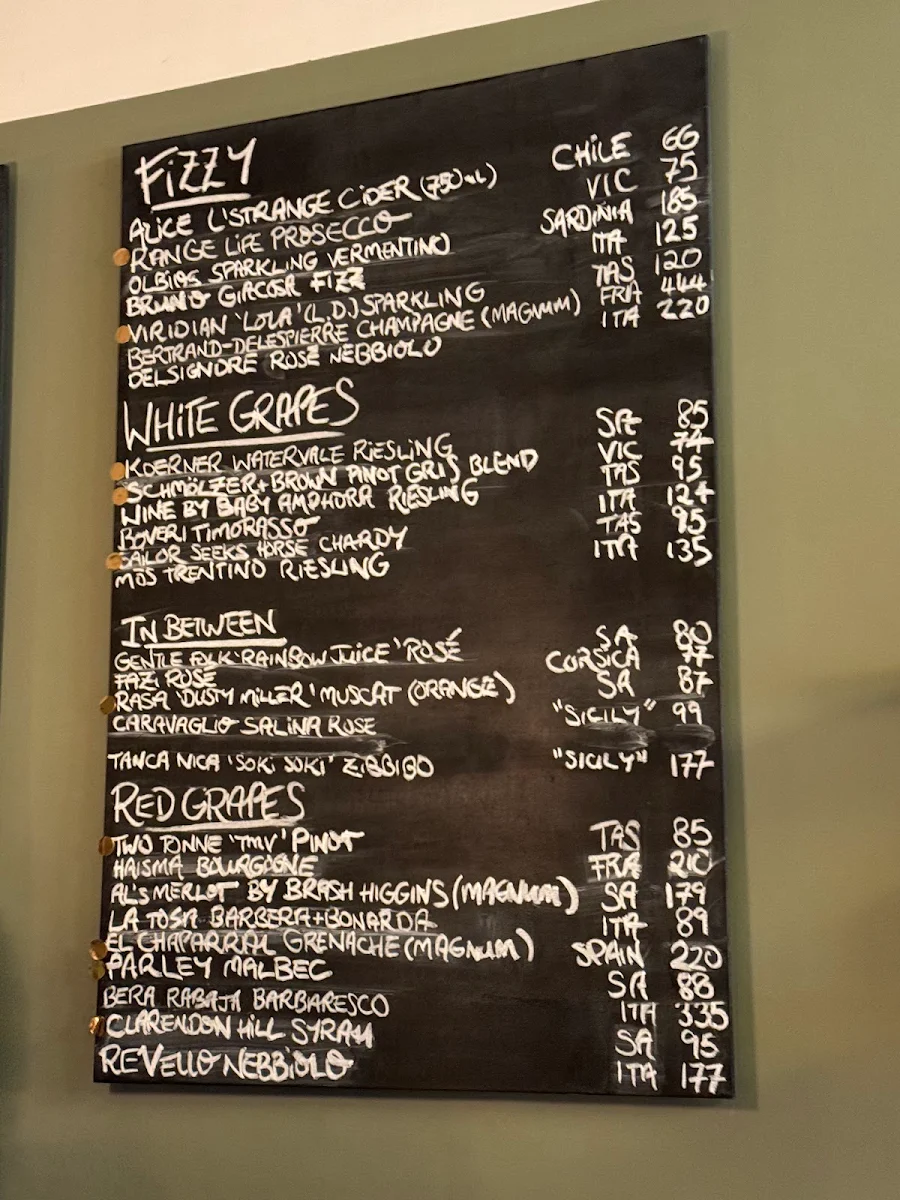 FIZZY
ALICE L'STRANGE CIDER (750mL) CHILE 66
RANGE LIFE PROSECCO VIC 75
OLBIOS SPARKLING VERMENTINO SARDINIA 185
BRUNO FIZZ ITA 125
VIRIDIAN 'LOLA' (L.D.) SPARKLING TAS 120
BERTRAND-DELESPIERRE CHAMPAGNE (MAGNUM) FRA 444
DELSIGNORE ROSE NEBBIOLO ITA 220
WHITE GRAPES
KOERNER WATERVALE RIESLING SA 85
SCHMÖLZER+BROWN PINOT GRIS BLEND VIC 74
WINE BY BABY AMPHORA RIESLING TAS 95
BOVERI TIMORASSO ITA 124
SAILOR SEEKS HORSE CHARDY TAS 95
MOS TRENTINO RIESLING ITA 135
IN BETWEEN
GENTLE FOLK 'RAINBOW JUICE' ROSÉ SA 80
FAZI ROSE CORSICA 77
RASA 'DUSTY MILLER' MUSCAT (ORANGE) SA 87
CARAVAGLIO SALINA ROSE "SICILY" 99
TANCA NICA 'SOKI SOKI' ZIBBIBO "SICILY" 177
RED GRAPES
TWO TONNE 'TMV' PINOT TAS 85
HAISMA BOURGOGNE FRA 210
AL'S MERLOT BY BRASH HIGGINS (MAGNUM) SA 179
LA TOSA BARBERA+BONARDA ITA 89
EL CHAPARRAL GRENACHE (MAGNUM) SPAIN 220
PARLEY MALBEC SA 88
BERA RABAJA BARBARESCO ITA 335
CLARENDON HILL SYRAH SA 95
REVELLO NEBBIOLO ITA 177